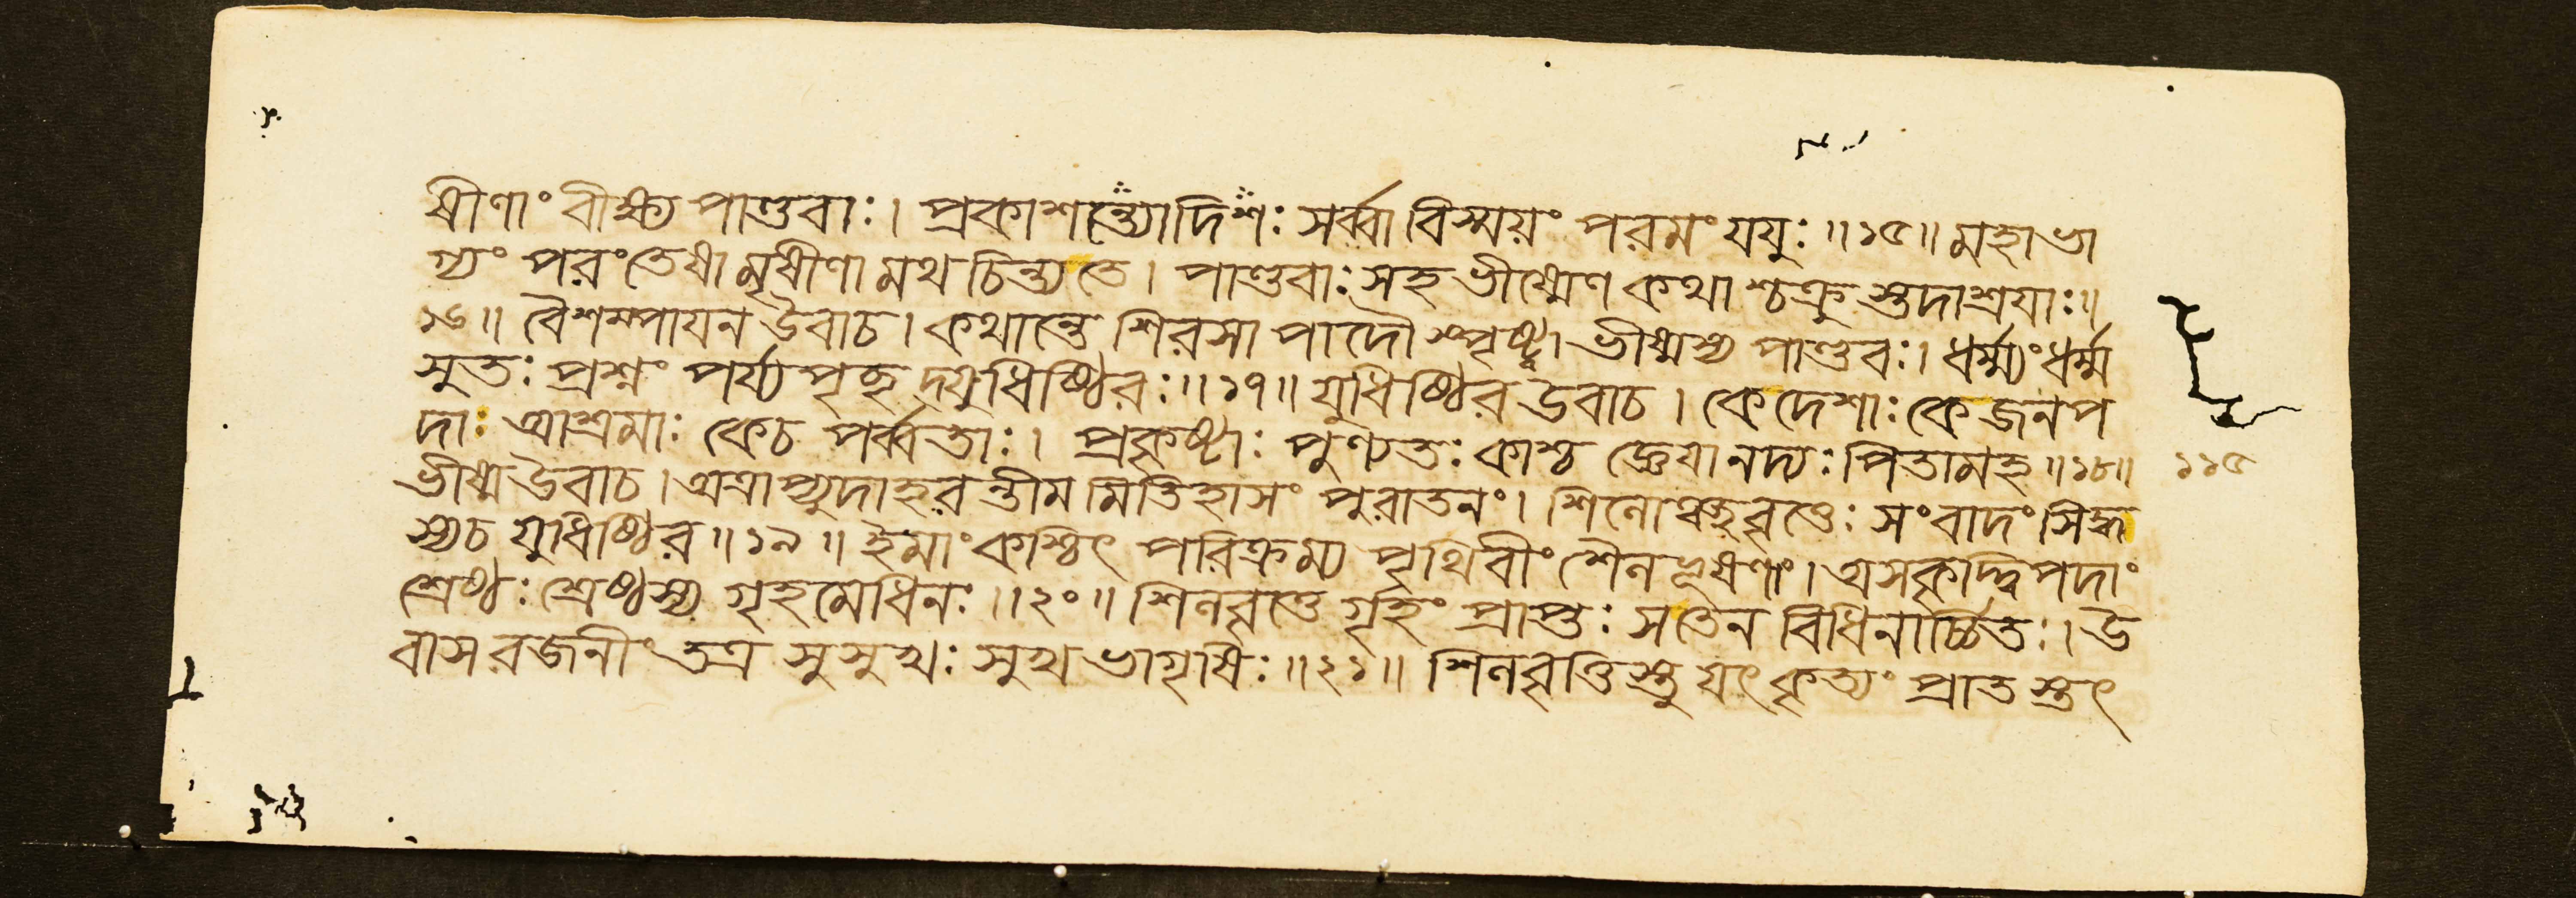 ষীণাং বীক্ষ্য পাণ্ডবাঃ। প্রকাশন্ত্যোদিশঃ সর্ব্বা বিস্ময়ং পরমং যযুঃ॥১৫॥ মহাভা
গ্যং পরং তেষামৃষীণামথ চিন্ত্য তে। পাণ্ডবাঃ সহ ভীষ্মেণ কথাশ্চক্রুস্তদাশ্রযাঃ॥
১৬॥ বৈশম্পাযন উবাচ। কথান্তে শিরসা পাদৌ স্পৃষ্ট্বা ভীষ্মস্য পাণ্ডবঃ। ধর্ম্ম্যং ধর্ম্ম
সুতঃ প্রশ্নং পর্য্যপৃচ্ছদ্যুধিষ্ঠিরঃ॥১৭॥ যুধিষ্ঠির উবাচ। কে দেশাঃ কে জনপ
দাঃ আশ্রমাঃ কেচ পর্ব্বতাঃ। প্রকৃষ্টাঃ পুণ্যতঃ কাশ্চ জ্ঞেযা নদ্যঃ পিতামহ॥১৮॥
১১৫
ভীষ্ম উবাচ। অত্রাপ্যুদাহরন্তীমমিতিহাসং পুরাতনং। শিনোঞ্ছবৃত্তেঃ সংবাদং সিদ্ধ
স্যচ যুধিষ্ঠির॥১৯॥ ইমাং কশ্চিৎ পরিক্রম্য পৃথিবীং শৈলভূষণাং। অসকৃদ্দ্বিপদাং
শ্রেষ্ঠঃ শ্রেষ্ঠস্য গৃহমেধিনঃ॥২০॥ শিনবৃত্তের্গৃহং প্রাপ্তঃ সতেন বিধিনার্চ্চিতঃ। উ
বাস রজনীং তত্র সুসুখঃ সুখভাগৃষিঃ॥২১॥ শিনবৃত্তিস্তু যৎ কৃত্যং প্রাতস্তৎ